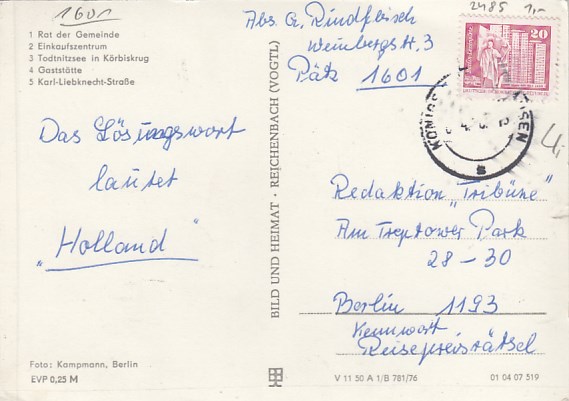 1601
1 Rat der Gemeinde
2 Einkaufszentrum
3 Todtnitzsee in Körbiskrug
4 Gaststätte
5 Karl-Liebknecht-Straße
Das Lösungswort
lautet
„Holland"
Foto: Kampmann, Berlin
EVP 0,25 M
BILD UND HEIMAT · REICHENBACH (VOGTL)
Abs. G. Rindfleisch
Weinbergstr. 3
Pätz 1601
2485 1,-
20
Redaktion „Tribüne"
Am Treptower Park
28 - 30
Berlin 1193
Kennwort
Reisepreisrätsel
V 11 50 A 1/B 781/76
01 04 07 519